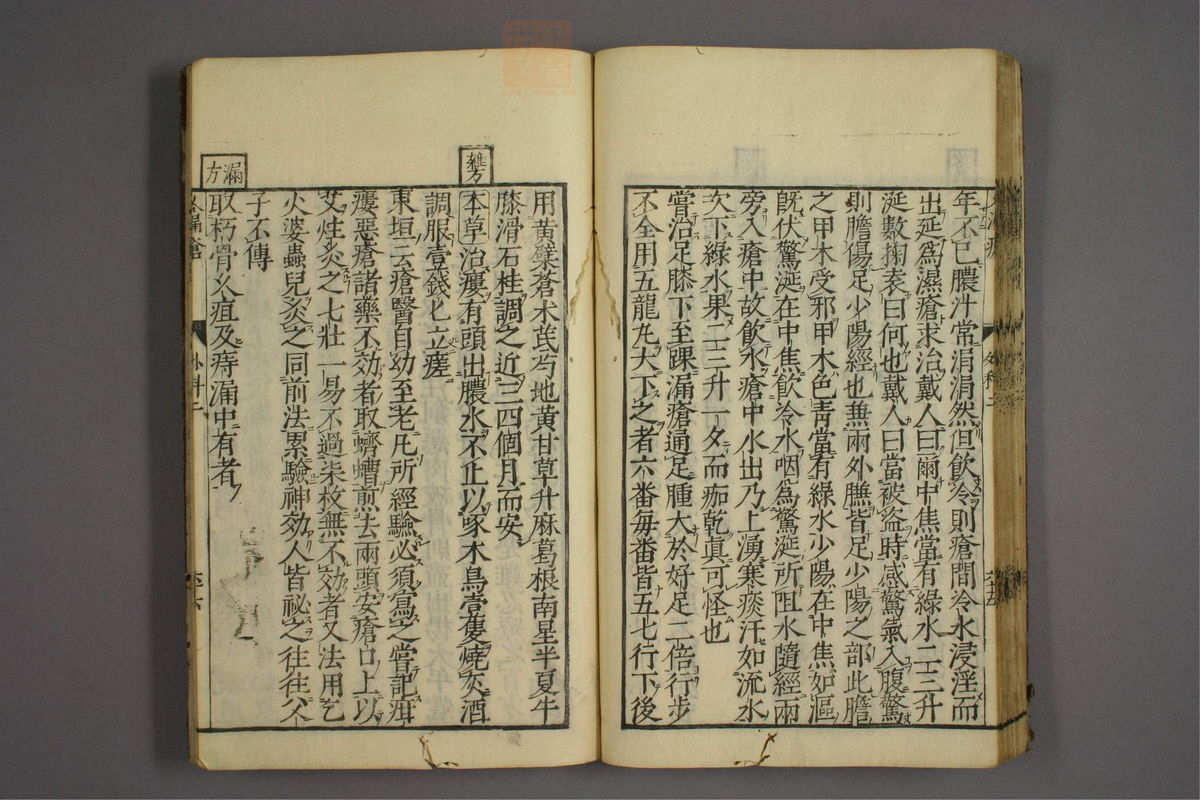 年不已膿汁常涓涓然但飲冷則瘡間冷水浸淫而
出延爲濕瘡求治戴人曰爾中焦當有綠水二三升
涎數掬袁曰何也戴人曰當被盜時感驚氣入腹驚
則膽傷足少陽經也兼兩外臁皆足少陽之部此膽
之甲木受邪甲木色青當有綠水少陽在中焦如漚
旣伏驚涎在中焦飲冷水咽爲驚涎所阻水隨經兩
旁入瘡中故飲水瘡中水出乃上湧寒痰汗如流水
次下綠水果二三升一夕而痂乾眞可怪也
嘗治足膝下至踝漏瘡通足腫大於好足二倍行步
不全用五龍丸大下之者六番每番皆五七行下後
用黃檗蒼朮芪芍地黃甘草升麻葛根南星半夏牛
膝滑石桂調之近三四個月而安
雜方
本草治瘻有頭出膿水不止以啄木鳥壹隻燒灰酒
調服壹錢匕立瘥
東垣云瘡醫自幼至老凡所經驗必須寫之嘗記疽
瘻惡瘡諸藥不効者取蠐螬煎去兩頭安瘡口上以
艾炷灸之七壯一易不過柒枚無不効者又法用乞
火婆蟲兒灸之同前法累驗神効人皆祕之往往父
子不傳
漏方
取朽骨久疽及痔漏中有者
外科二